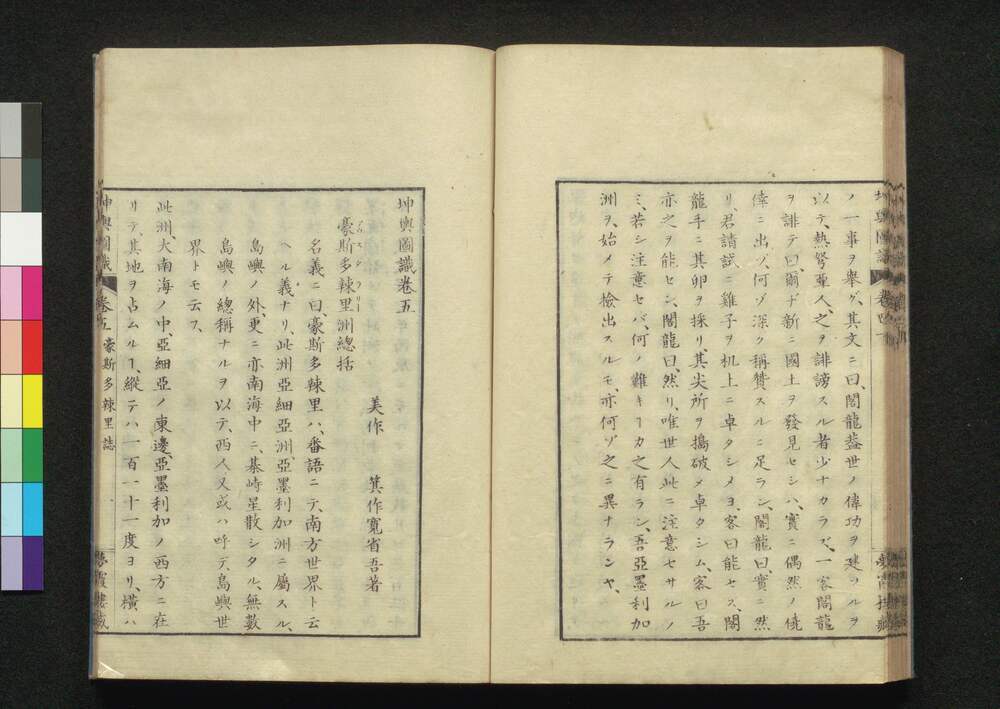 ノ一事ヲ擧グ、其文ニ曰、閣龍蓋世ノ偉功ヲ建ツルヲ
以テ、熱弩亜人、之ヲ誹謗スル者少ナカラズ、一客閣龍
ヲ誹テ曰、爾ヂ新ニ國土ヲ發見セシハ、實ニ偶然ノ僥
倖ニ出ヅ、何ゾ深ク稱賛スルニ足ラン、閣龍曰、實ニ然
リ、君請試ニ雞子ヲ机上ニ卓タシメヨ、客曰能セス、閣
龍手ニ其卵ヲ採リ、其尖所ヲ搗破メ卓タシム、客曰吾
亦之ヲ能セン、閣龍曰、然リ、唯世人此ニ注意セサルノ
ミ、若シ注意セバ、何ノ難キヿカ之有ラン、吾亞墨利加
洲ヲ、始メテ檢出スルモ、亦何ゾ之ニ異ナランヤ、
坤輿圖識卷五
美作 箕作寛省吾著
豪斯多辣里洲總括
名義ニ曰、豪斯多辣里ハ、番語ニテ、南方世界ト云
ヘル義ナリ、此洲亞細亞洲、亞墨利加洲ニ屬スル、
島嶼ノ外、更ニ亦南海中ニ、棊峙星散シタル、無數
島嶼ノ總稱ナルヲ以テ、西人又或ハ呼テ、島嶼世
界トモ云フ、
此洲大南海ノ中、亞細亞ノ東邊、亞墨利加ノ西方ニ在
リテ、其地ヲ占ムルヿ、縱テハ一百一十一度ヨリ、横ハ
坤輿圖識 卷五 豪斯多辣里誌 夢霞樓藏